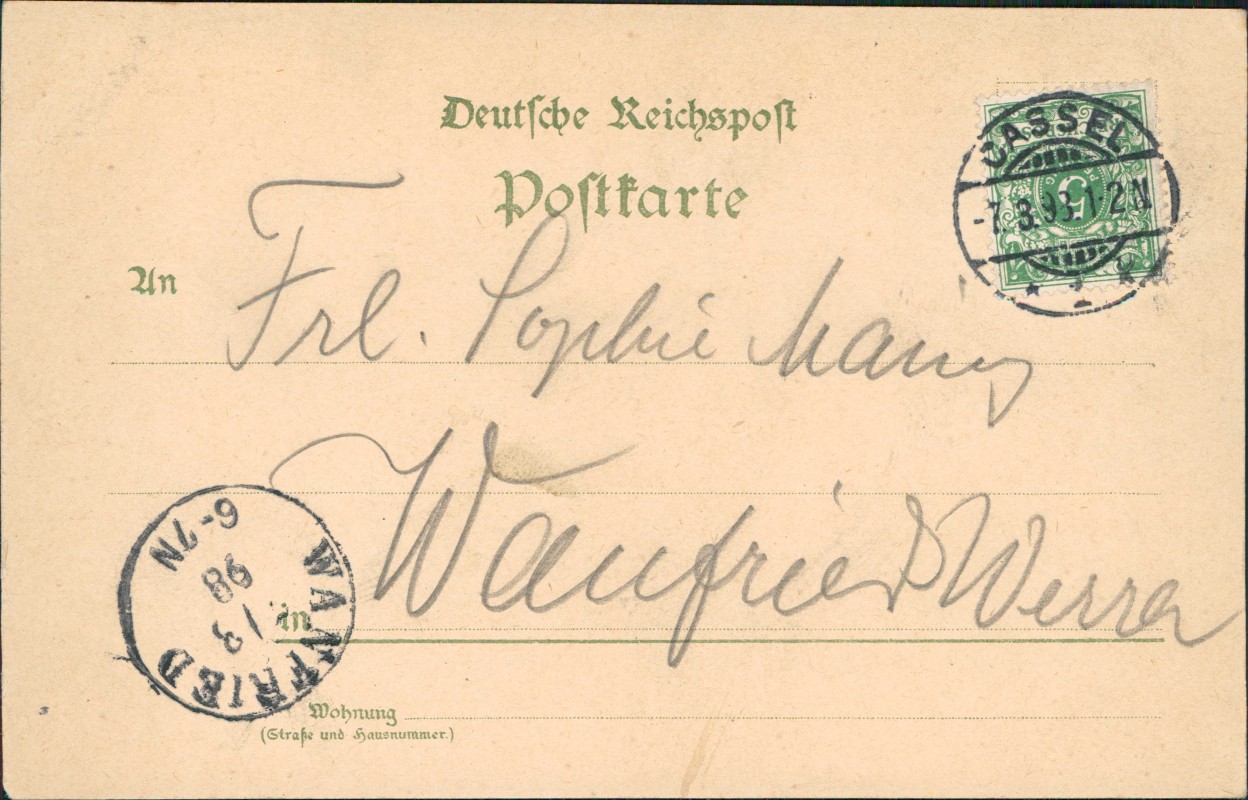 Deutsche Reichspost
Postkarte
CASSEL
-7.3.98.1-2N
* 1
5
An
Frl. Sophie
Wanfried Werra
in
WANFRIED
1 3
98
6-7N
Wohnung
(Straße und Hausnummer.)